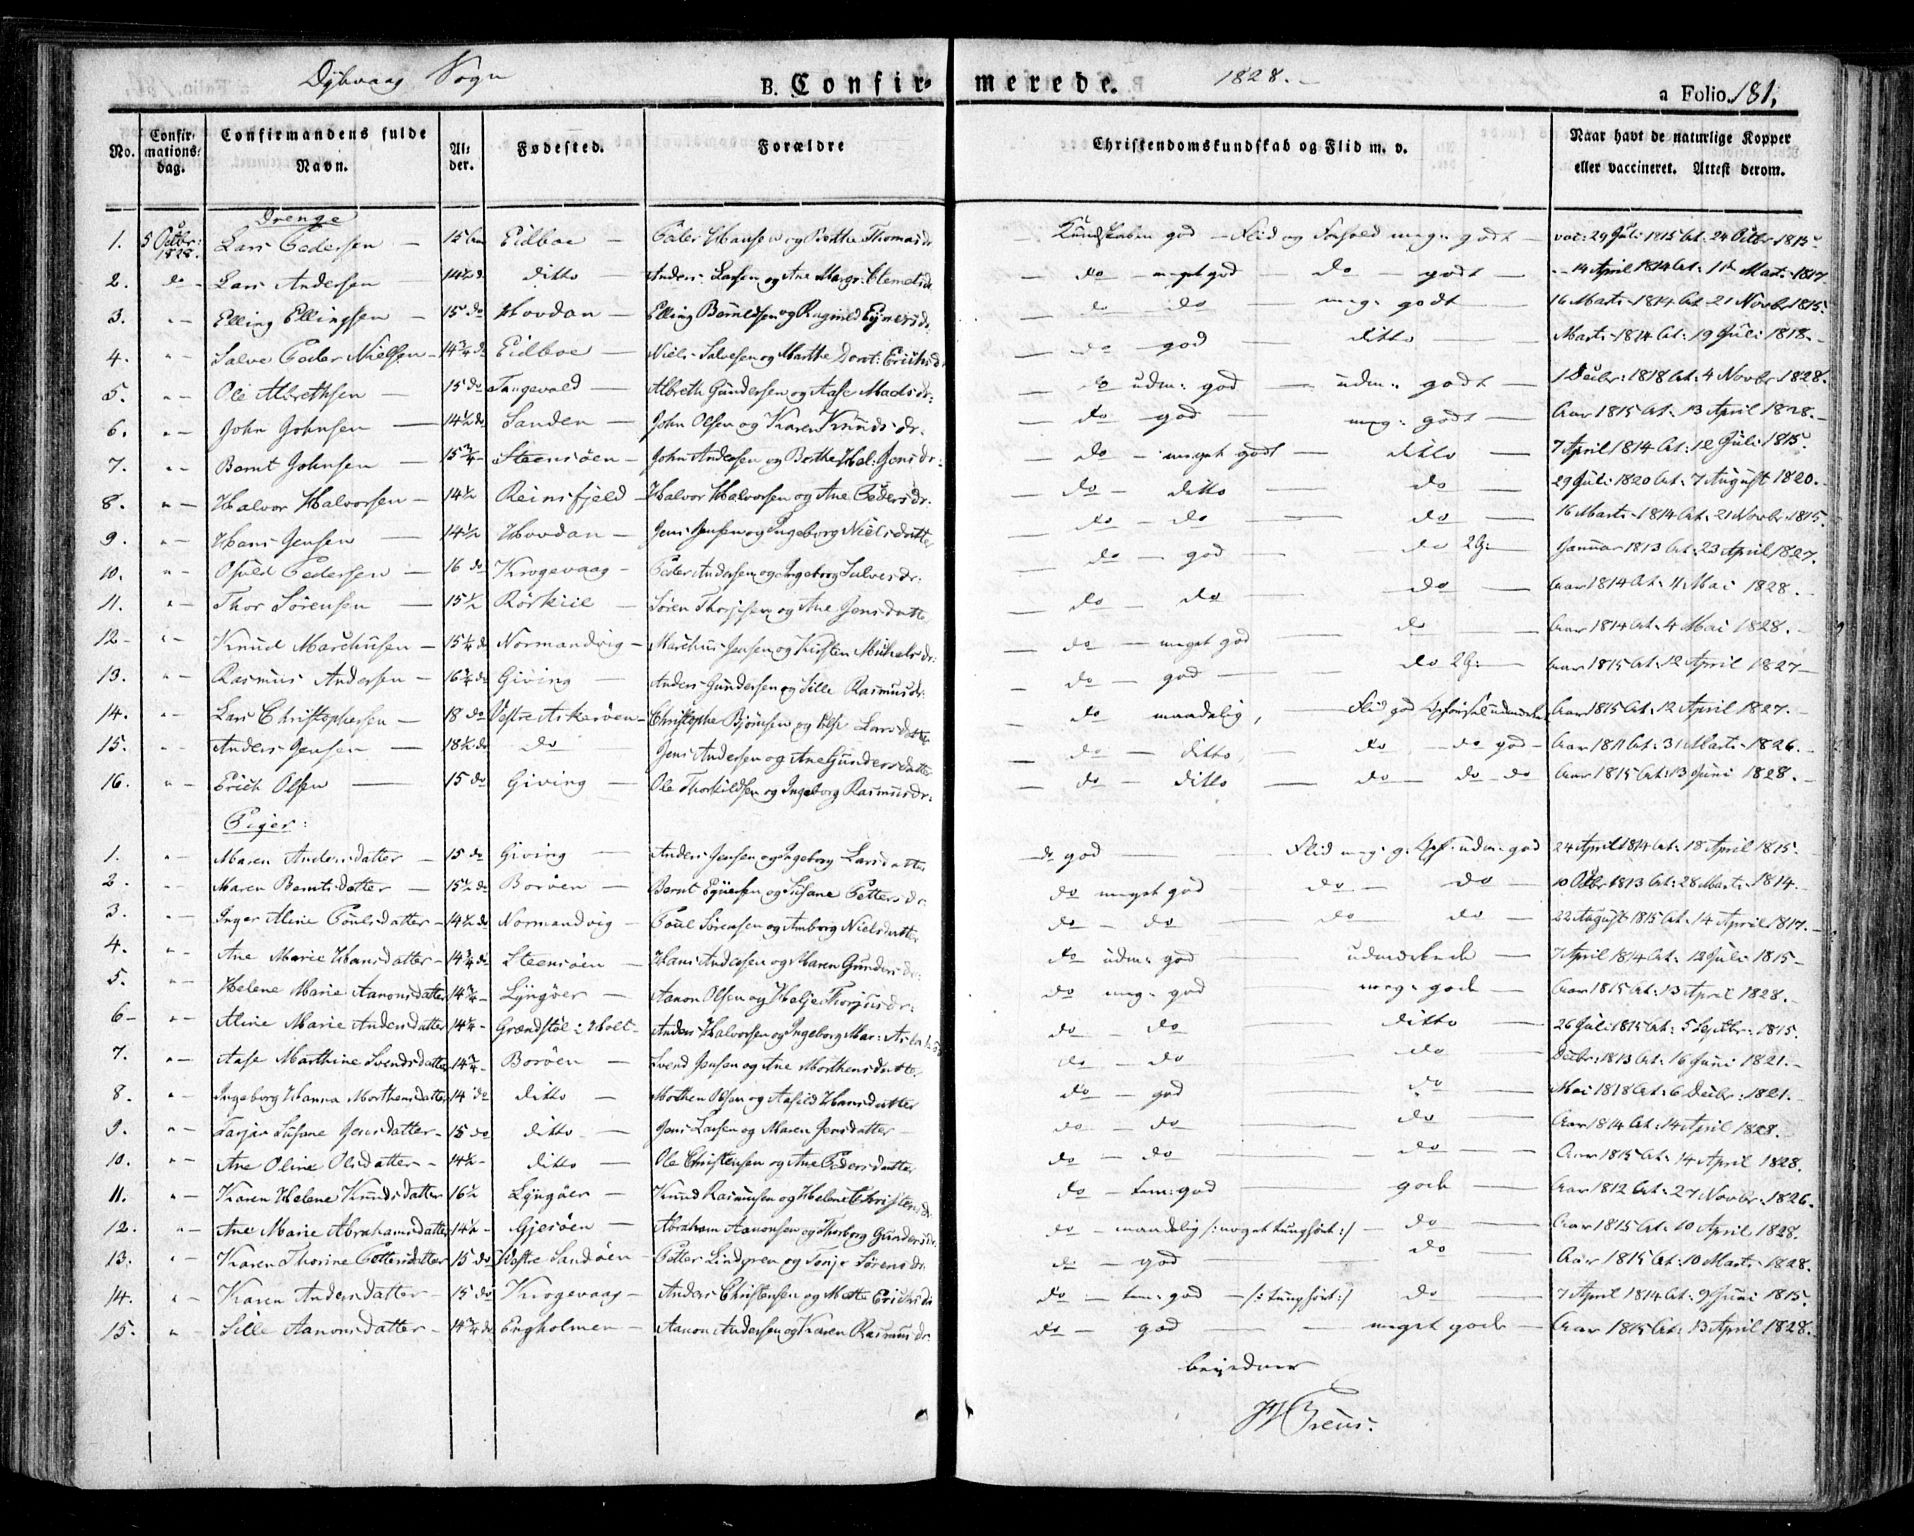 Dybvaag Sogn B. Confirmerede. 1828. a Folio 181,
No. Confirmationsdag. Confirmandens fulde Navn. Alder. Fødested. Forældre Christendomskundskab og Flid m. v. Naar havt de naturlige Kopper eller vaccineret. Attest derom.
Drenge
1. 5 Octbr: 1828. Lars Pedersen 15 Eidboe Peder Hansen og Berthe Thomasdr Kundskaben god Flid og Forhold meg: godt vac: 29 Juli 1815 At: 24 Octbr 1815
2. do Lars Andersen 14½ d ditto Anders Larsen og Ane Margr: Clemetsdr do meget god do godt 14 April 1814 At: Marts 1817
3. " Elling Ellingsen 15 do Hovdan Elling Berntdsen og Ragnild Ejversd. do do meg: godt 16 Marts 1814 At: 21 Novbr 1815.
4. " Salve Peder Nielsen 14¾ d Eidboe Niels Salvesen og Marthe Dorot: Erichsdr do god ditto Marts 1814 At: 19 Juli 1818.
5. " Ole Albrethsen 15 do Tangevald Albreth Gundersen og Aase Madsdr: do udm: god udm: godt 1 Decbr: 1818 At: 4 Novbr 1828.
6. " John Johnsen 14½ do Sanden John Olsen og Karen Knudsdr. do god meg: godt Aar 1815 At: 13 April 1828.
7. " Bernt Johnsen 15¾ Steensøen John Andersen og Berthe Hel: Jensdr: do meget godt ditto 7 April 1814 At: 12 Juli 1815
8. " Halvor Halvorsen 14½ Reinsfjeld Halvor Halvorsen og Ane Pedersdr. do ditto do 29 Juli 1820 At: 7 August 1820.
9. " Hans Jensen 14½ Hovdan Jens Jensen og Ingeborg Nielsdatter do do do 16 Marts 1814 At: 21 Novbr 1815.
10. " Osuld Pedersen 16 do Krogevaag Peder Andersen og Ingeborg Salvesdr: do god do 2 G: Januar 1813 At: 23 April 1827.
11. " Thor Sørensen 15½ Rørkiil Søren Thorsen og Ane Jensdatter do do do Aar 1814 At: 4 Mai 1828.
12 " Knud Marchusen 15¼ do Normandvig Marchus Jensen og Kirsten Michelsdr: do meget god do Aar 1814 At: 4 Mai 1828.
13. " Rasmus Andersen 16¾ do Giving Anders Gundersen og Sille Rasmusdr: do god do 2 G: Aar 1815 At: 12 April 1827
14. " Lars Christophersen 18 do Vestre Askerøen Christopher Bjørnsen og Else Larsdatter do maadelig, Flid god Aar 1815 At: 12 April 1827.
15. " Anders Jensen 18½ do do Jens Andersen og Ane Gundersdatter do ditto, do do god Aar 1811 At: 31 Marts 1826.
16. " Erich Olsen 15 do Giving Ole Thorkildsen og Ingeborg Rasmusdr: do ditto do do do Aar 1815 At: 13 Juni 1828.
Piger:
1. " Maren Andersdatter 15 do Giving Anders Jensen og Ingeborg Larsdatter do god Flid meg: g. Opf: udm: god 24 April 1814 At: 18 April 1815.
2. " Maren Berntsdatter 15½ do Borøen Bernt Syversen og Susane Pettersdr: do meget god do do 10 Octbr 1813 At: 28 Marts 1814.
3. " Inger Aline Poulsdatter 14½ do Normandvig Poul Sørensen og Amborg Nielsdatter do do do do 22 August 1815 At: 14 April 1817.
4. " Ane Marie Hansdatter 14¾ do Steensøen Hans Andersen og Maren Gundersdr: do udm: god udmærkede 7 April 1814 At: 12 Juli 1815
5. " Helene Marie Aanonsdatter 14¾ Lyngøer Aanon Olsen og Helje Thorjusdr: do meg: god meg: gode Aar 1815 At: 13 April 1828.
6 " Aline Marie Andersdatter 14¼ Grændstøl i Holt Anders Halvorsen og Ingeborg Mar: do do ditto 26 Juli 1815 At: 5 Septbr: 1815.
7. " Aase Marthine Svendsdatter 14¾ Borøen Svend Jensen og Ane Morthensdatter do do do Decbr: 1813 At: 16 Juni 1821.
8. " Ingeborg Hanna Morthensdatter 14 do ditto Morthen Olsen og Aasild Hansdatter do god do Mai 1818 At: 6 Decbr: 1821.
9. " Tarjær Susane Jensdatter 15 do ditto Jens Larsen og Maren Jensdatter do do do Aar 1814 At: 14 April 1828.
10. " Ane Oline Olsdatter 14½ ditto Ole Christensen og Ane Pedersdatter do do do Aar 1815 At: 14 April 1828.
11. " Karen Helene Knudsdatter 16½ Lyngøer Knud Rasmusen og Helene Christensd. do tem: god gode Aar 1812 At: 27 Novbr 1826.
12. " Ane Marie Abrahamsdatter 14½ Gjesøen Abraham Aanonsen og Thorborg Gundersdr. do maadelig /: noget tunghørt :/ do Aar 1815 At: 10 April 1828.
13. " Karen Thorine Pettersdatter 15 do Vestre Sandøen Petter Lindgren og Tonje Sørensdr. do god do Aar 1815 At: 10 Marts 1828.
14. " Karen Andersdatter 15 do Krogevaag Anders Christensen og Mette Erichsdr do tem: god /: tunghørt :/ do 7 April 1814 At: 9 Juni 1815.
15. " Sille Aanonsdatter 14¾ do Engholmen Aanon Andersen og Karen Rasmusdr. do god meget gode Aar 1815 At: 13 April 1828.
bevidner